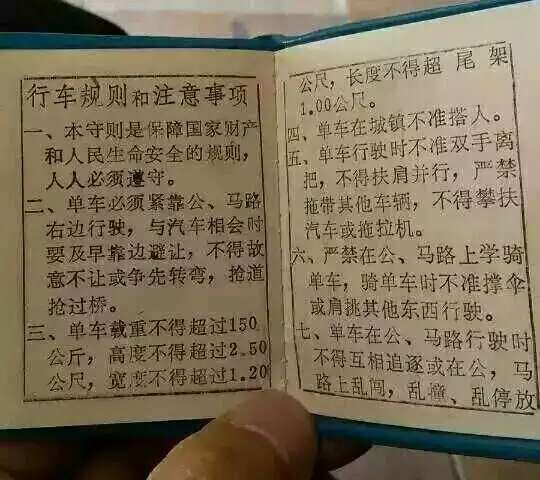 行车规则和注意事项
一、本守则是保障国家财产
和人民生命安全的规则，
人人必须遵守。
二、单车必须紧靠公、马路
右边行驶，与汽车相会时
要及早靠边避让，不得故
意不让或争先转弯，抢道
抢过桥。
三、单车载重不得超过150
公斤，高度不得超过2.50
公尺，宽度不得超过1.20
公尺，长度不得超 尾 架
1.00公尺。
四、单车在城镇不准搭人。
五、单车行驶时不准双手离
把，不得扶肩并行，严禁
拖带其他车辆，不得攀扶
汽车或拖拉机。
六、严禁在公、马路上学骑
单车，骑单车时不准撑伞
或肩挑其他东西行驶。
七、单车在公、马路行驶时
不得互相追逐或在公，马
路上乱闯，乱撞、乱停放